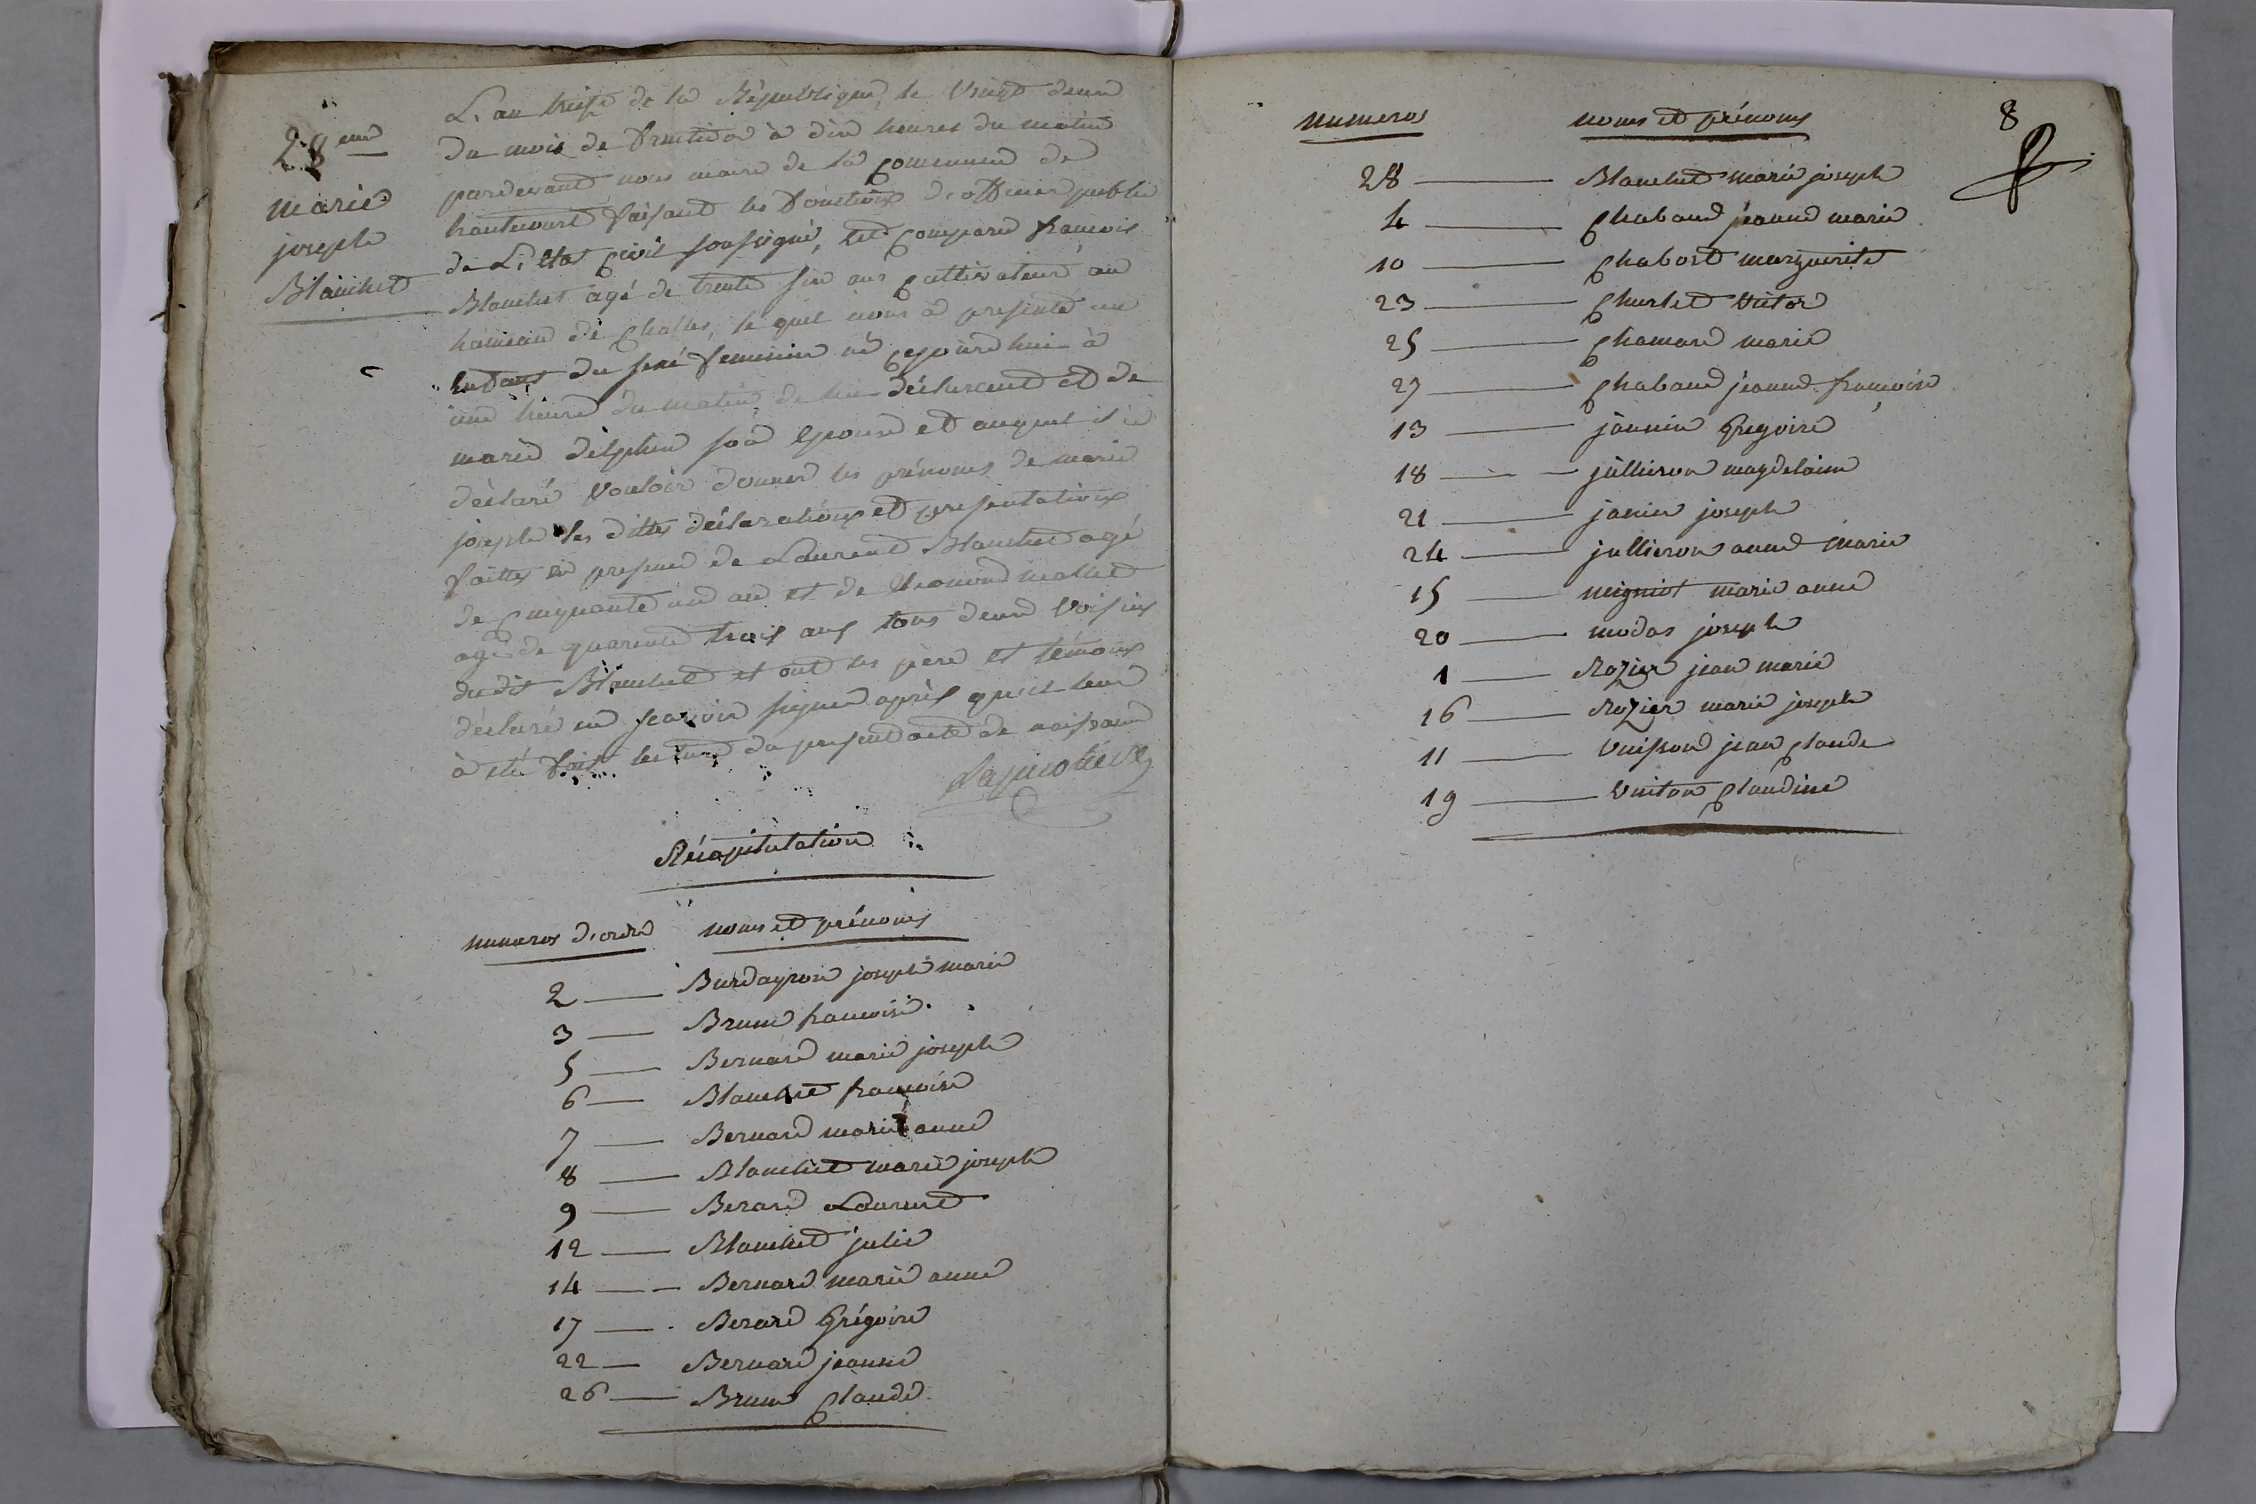 28eme
marie
joseph
Blanchet
L'an treise de la République, le vingt deux
du mois de fructidor à dix heures du matin
pardevant nous maire de la commune de
hautecourt faisant les fonctions d'officier public
de L'état civil soussigné, est comparu francois
Blanchet agé de trente six ans cultivateur au
hameau de Challes, le quel nous à presenté un
enfant du sexe feminin né cejourd'hui à
une heure du matin de lui déclarant et de
marie delphin son epouse et auquel il a
déclaré vouloir donner les prénoms de marie
joseph les dittes déclarations et presentations
faittes en presence de Laurent Blanchet agé
de cinquante un ans et de mollet
agé de quarente trois ans tous deux voisins
dudit Blanchet et ont les père et témoins
déclaré ne scavoir signer après qu'il leur
à été fait lecture du present acte de naissance
Récapitulation
numeros d'ordre noms et prénoms
2 — Burdayron joseph marie
3 — Brun francoise
5 — Bernard marie joseph
6 — Blanchet francoise
7 — Bernard marie anne
8 — Blanchet marie joseph
9 — Berard Laurent
12 — Blanchet julie
14 — Bernard marie anne
17 — Berard Grégoire
22 — Bernard jeanne
26 — Brun Claude
8
numeros noms et prénoms
28 — Blanchet marie joseph
4 — Chaband jeanne marie
10 — Chabord marguerite
23 — Churlet victor
25 — Chamard marie
27 — Chaband jeanne francoise
13 — jannin Gregoire
18 — jullieron magdelaine
21 — janin joseph
24 — jullieron anne marie
15 — migniot marie anne
20 — modas joseph
1 — Rozier jean marie
16 — Rozier marie joseph
11 — vuisson jean Claude
19 — vuiton Claudine